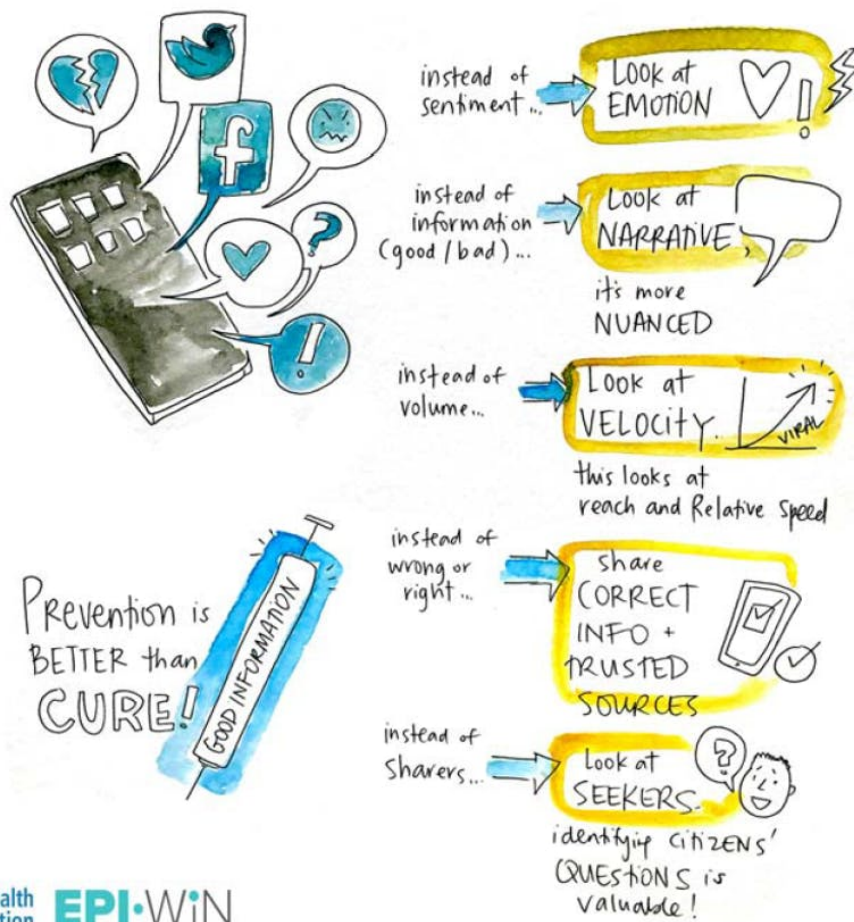 instead of
sentiment...
Look at
EMOTION
instead of
information
(good / bad)...
Look at
NARRATIVE,
it's more
NUANCED
instead of
volume...
Look at
VELOCITY.
VIRAL
this looks at
reach and Relative Speed
instead of
wrong or
right...
share
CORRECT
INFO +
TRUSTED
SOURCES
instead of
Sharers...
Look at
SEEKERS.
?
identifying CITIZENS'
QUESTIONS is
valuable!
f
?
!
Prevention is
BETTER than
CURE!
GOOD INFORMATION
alth
tion
EPI·WiN